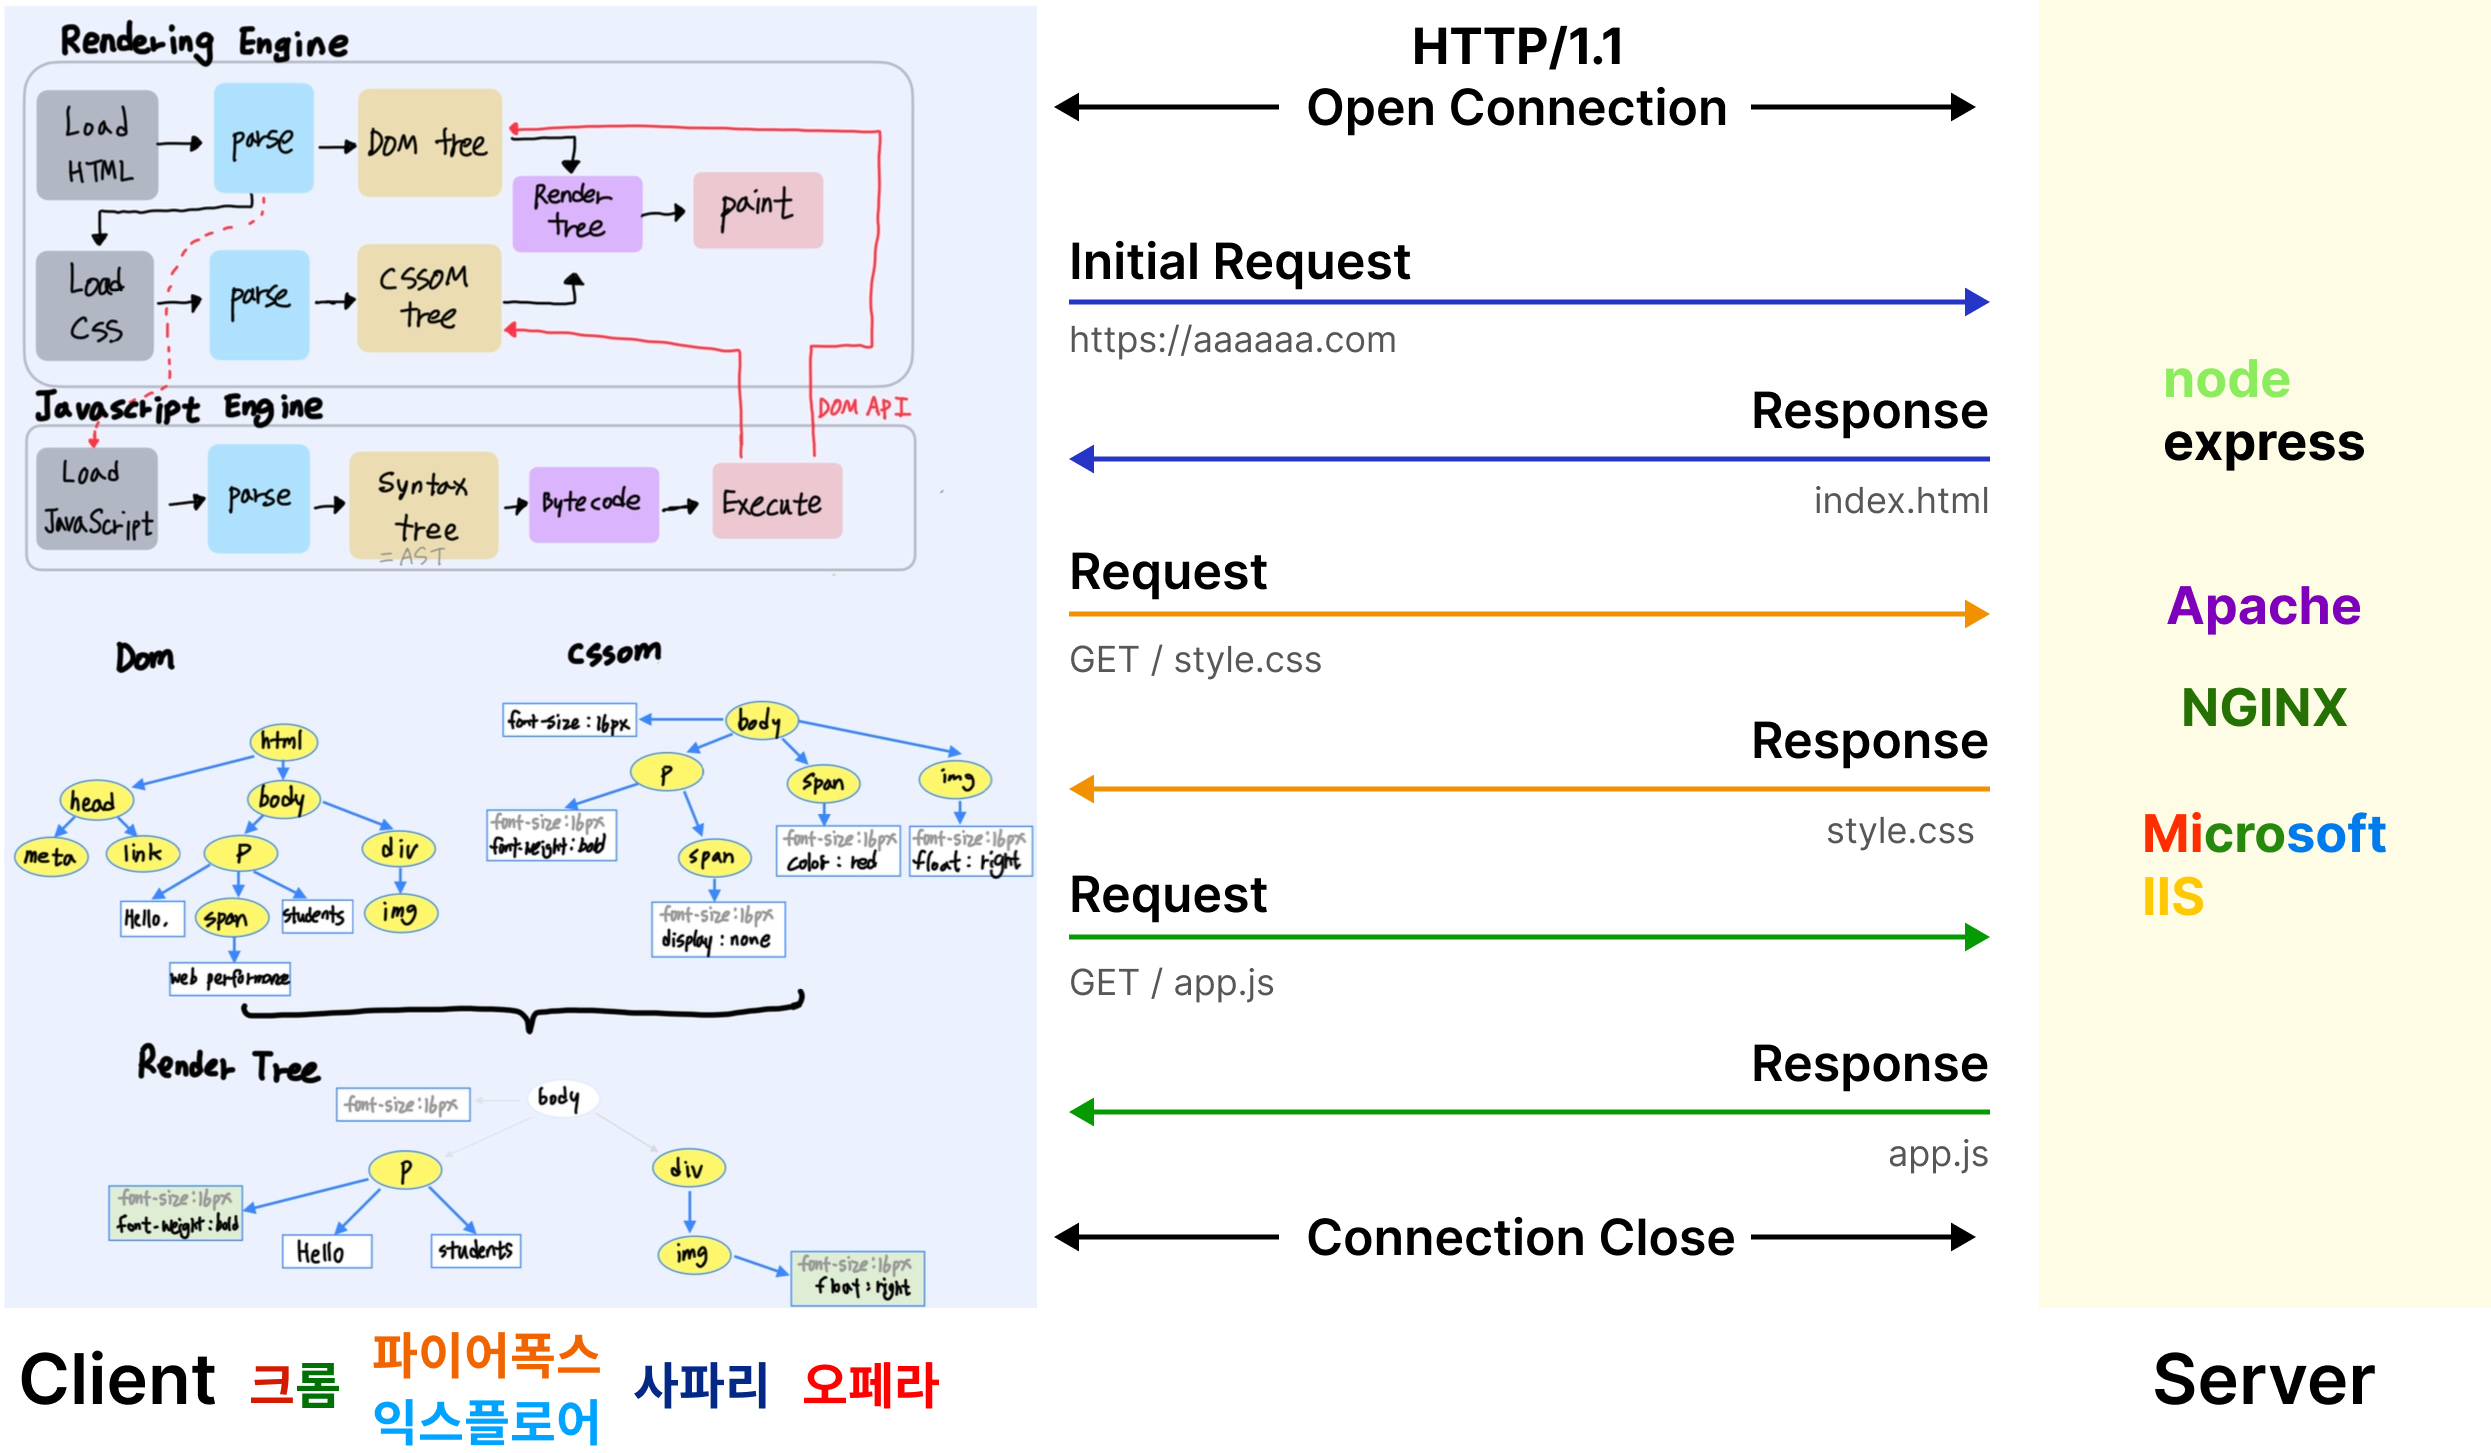 Rendering Engine
Load
HTML
parse
DOM tree
Render
tree
paint
Load
CSS
parse
CSSOM
tree
Javascript Engine
DOM API
Load
JavaScript
parse
Syntax
tree
= AST
Bytecode
Execute
Dom
html
head
body
meta
link
P
div
Hello.
span
students
img
web performance
cssom
font-size : 16px
body
P
span
img
font-size : 16px
font-weight : bold
span
font-size : 16px
color : red
font-size : 16px
float : right
font-size : 16px
display : none
Render Tree
font-size : 16px
body
P
div
font-size : 16px
font-weight : bold
Hello
students
img
font-size : 16px
float : right
HTTP/1.1
Open Connection
Initial Request
https://aaaaaa.com
Response
index.html
Request
GET / style.css
Response
style.css
Request
GET / app.js
Response
app.js
Connection Close
node
express
Apache
NGINX
Microsoft
IIS
Client
크롬
파이어폭스
익스플로어
사파리
오페라
Server